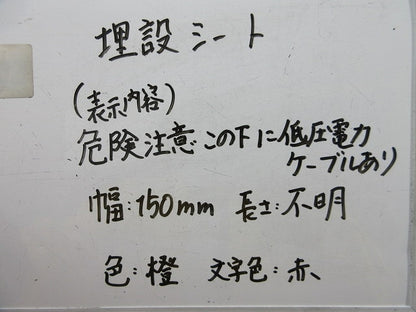 埋設シート
(表示内容)
危険注意 この下に低圧電力
ケーブルあり
幅:150mm 長さ:不明
色:橙 文字色:赤